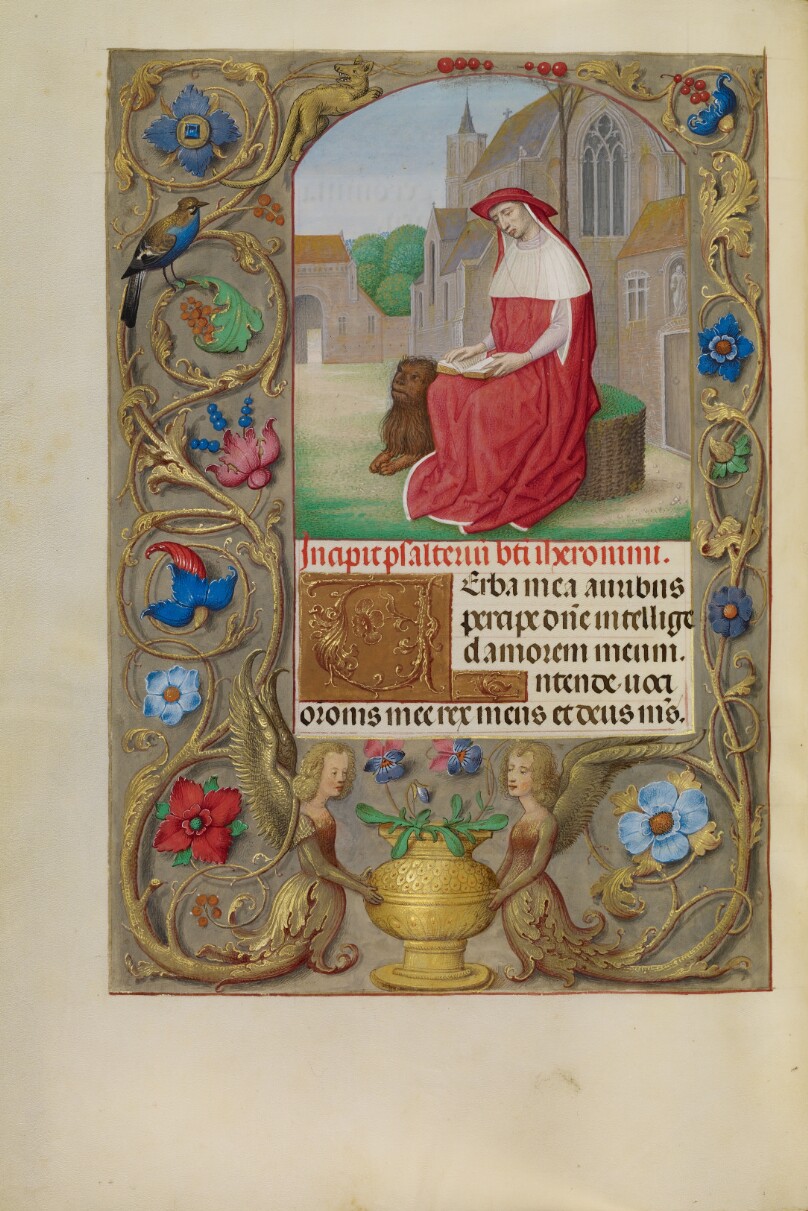 Incipit psalteriū bt̄i iheronimi.
Verba mea auribus
percipe dn̄e intellige
clamorem meum.
Intende uoci
or̄onis mee rex meus et deus m̄s.